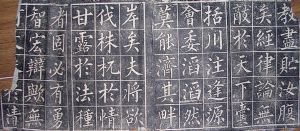 教盡貯汝腹
矣經律論無
敵於天下囊
括川注逢源
會委滔滔然
莫能濟其畔
岸矣夫將欲
伐株杌於情
甘露於法種
者固必有勇
智宏辯歟無
於清